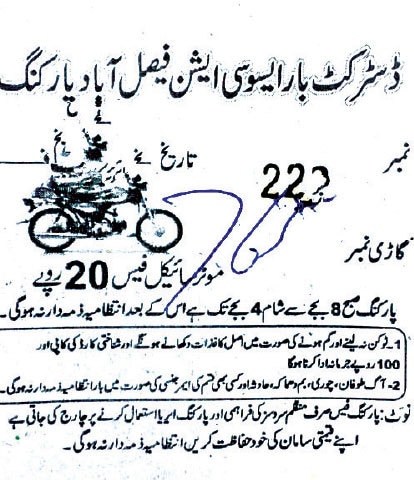 ڈسٹرکٹ بار ایسوسی ایشن فیصل آباد پارکنگ
نمبر 222 تاریخ
گاڑی نمبر
موٹر سائیکل فیس 20 روپے
پارکنگ صبح 8 بجے سے شام 4 بجے تک ہے اس کے بعد انتظامیہ ذمہ دار نہ ہوگی۔
1۔ ٹوکن نہ لینے اور گم ہونے کی صورت میں اصل کاغذات دکھانے ہونگے اور شناختی کارڈ کی کاپی اور
100 روپے جرمانہ ادا کرنا ہوگا
2۔ آگ، طوفان، چوری، بم دھماکہ، حادثہ اور کسی بھی قسم کی ایمرجنسی کی صورت میں بار انتظامیہ ذمہ دار نہ ہوگی۔
نوٹ: پارکنگ فیس صرف منظم سروسز کی فراہمی اور پارکنگ ایریا استعمال کرنے پر چارج کی جاتی ہے
اپنے قیمتی سامان کی خود حفاظت کریں انتظامیہ ذمہ دار نہ ہوگی۔